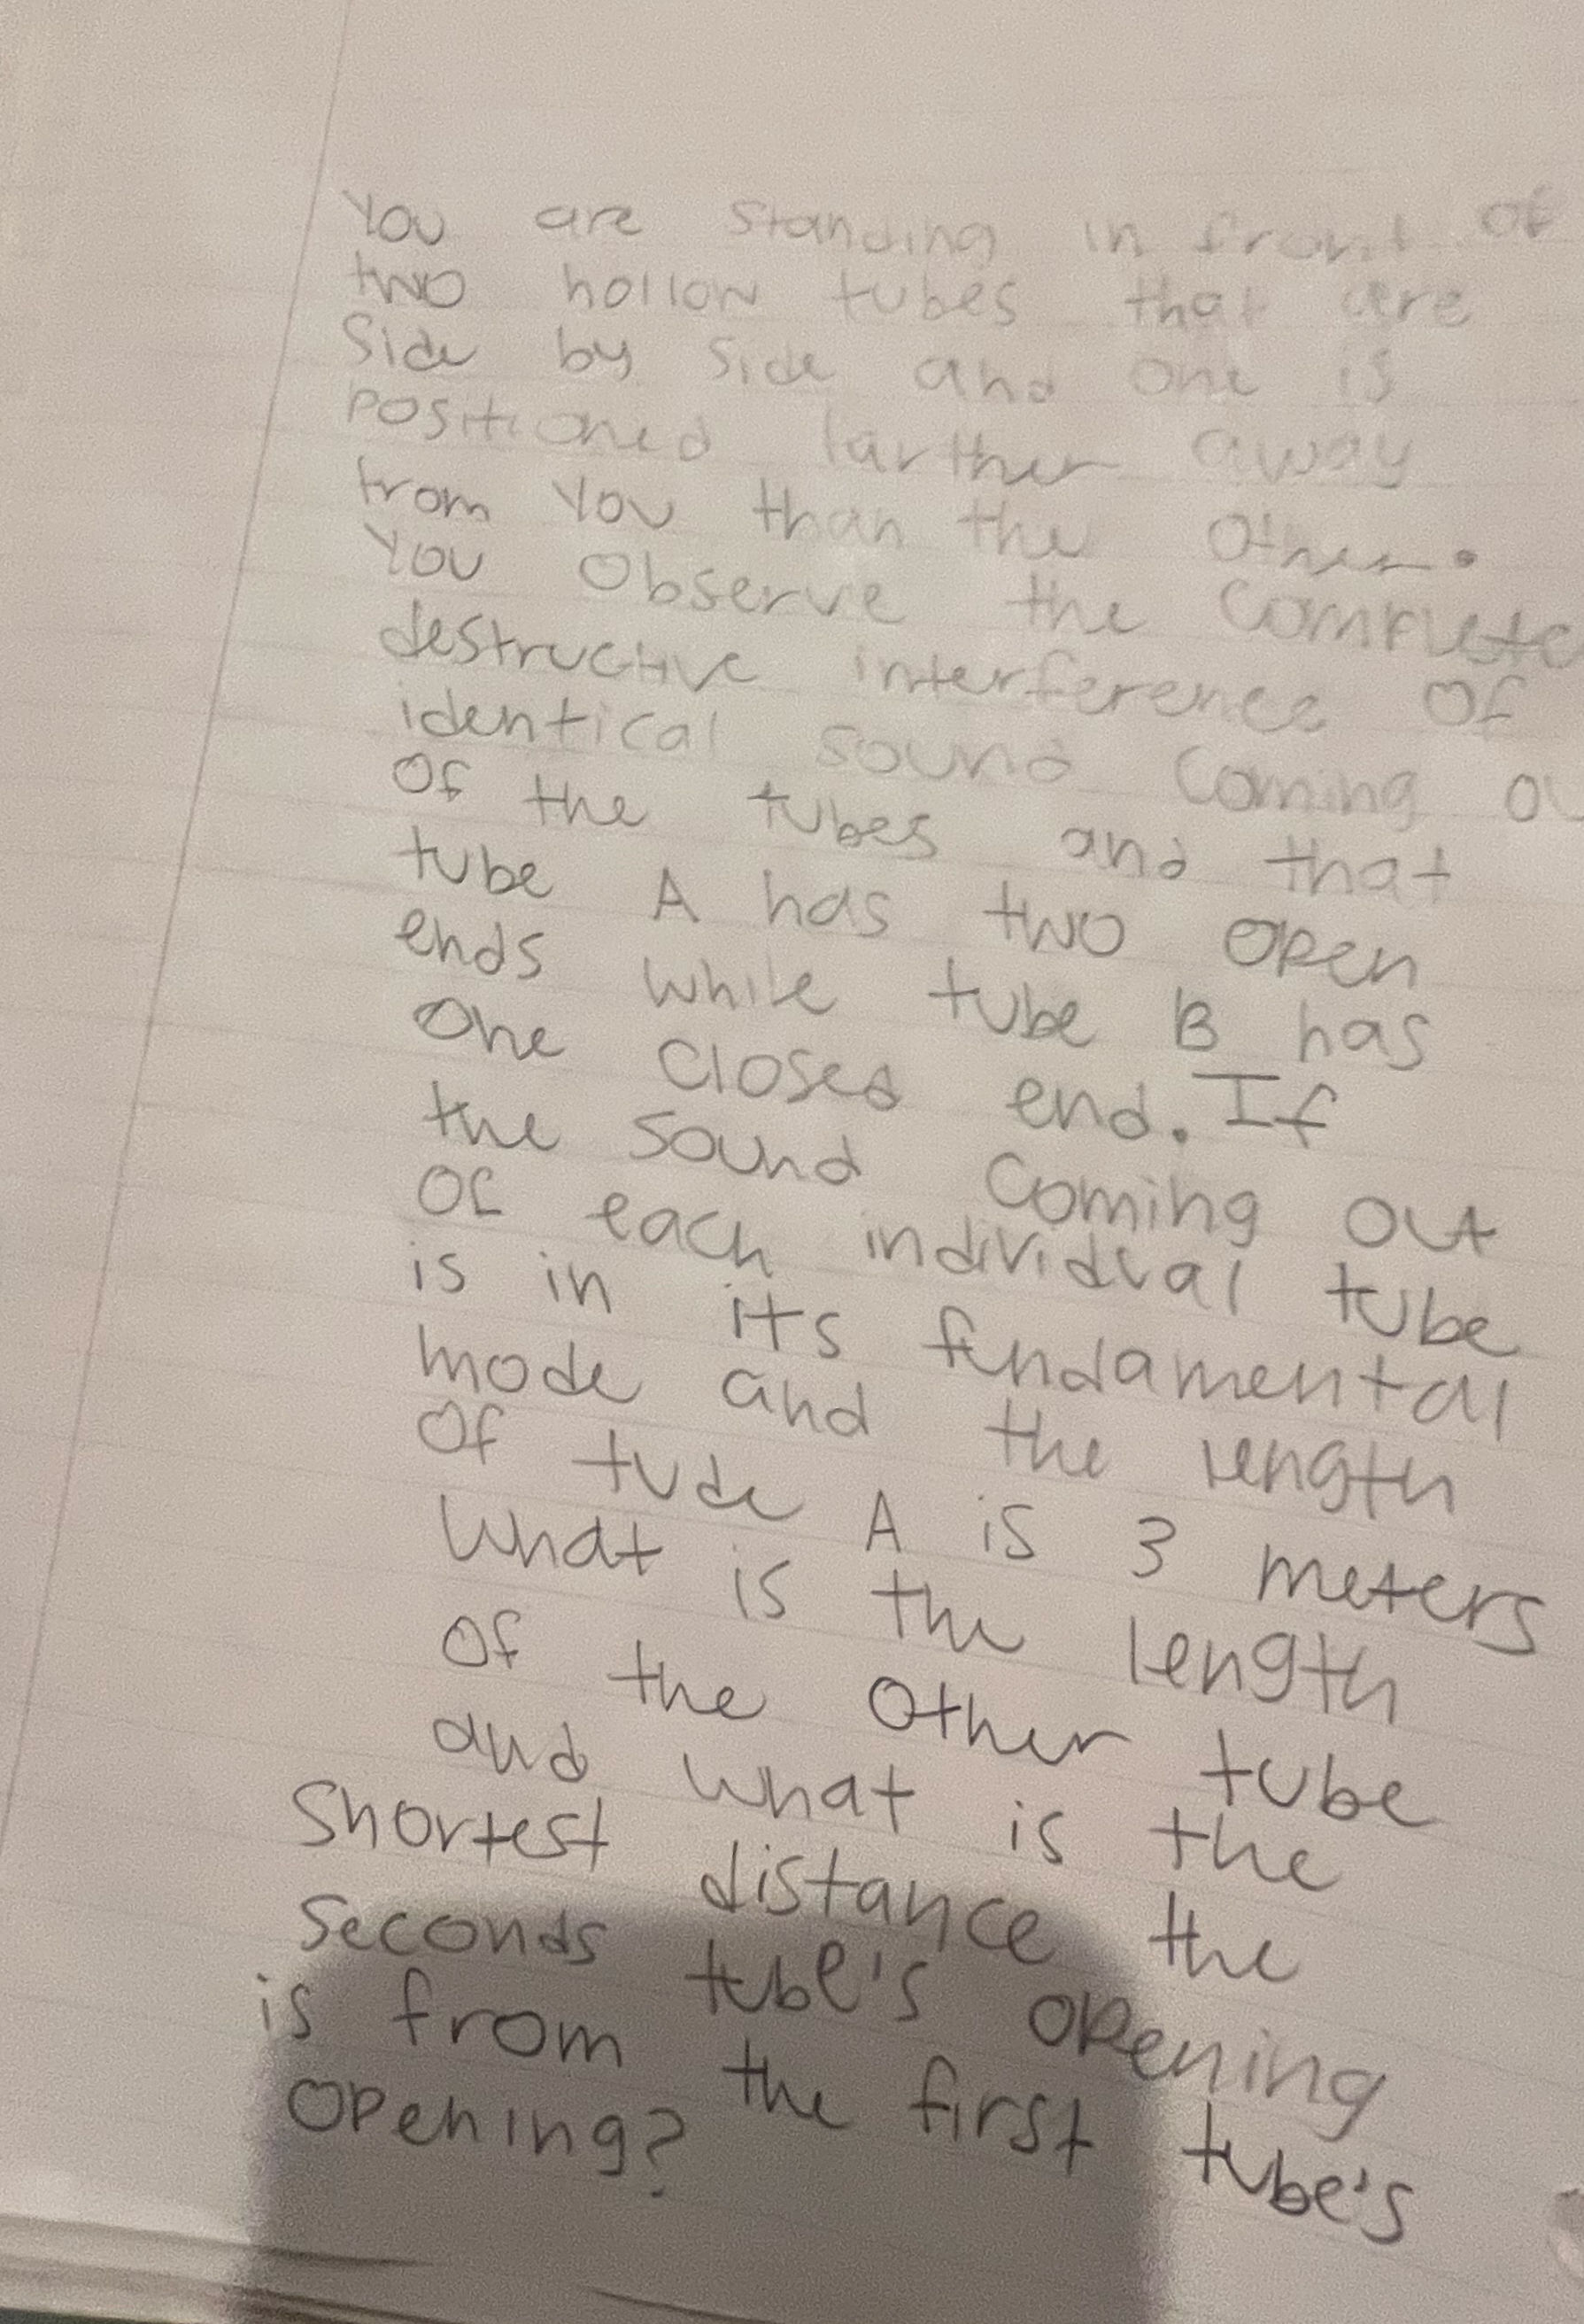 You are standing in front of
two hollow tubes that are
side by side and one is
positioned farther away
from you than the other.
You observe the complete
destructive interference of
identical sound coming ou
of the tubes and that
tube A has two open
ends while tube B has
one closed end. If
the sound coming out
of each individual tube
is in its fundamental
mode and the length
of tude A is 3 meters
What is the length
of the other tube
and what is the
shortest distance the
seconds tube's opening
is from the first tube's
opening?